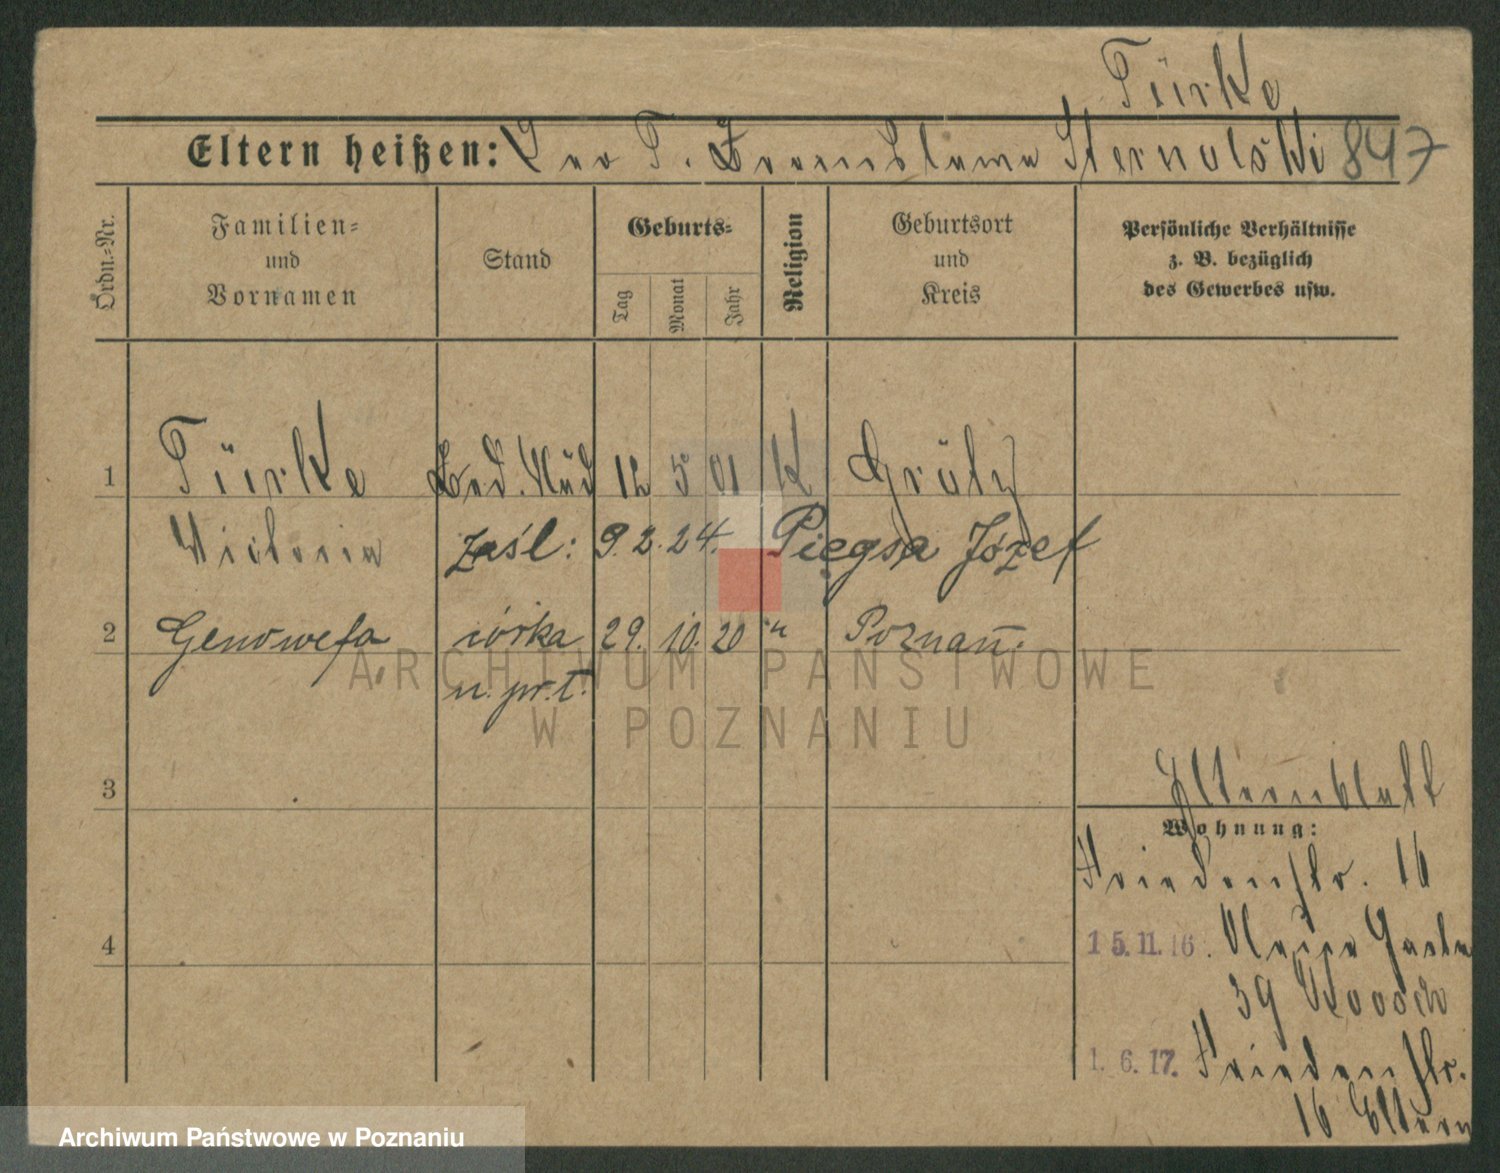 Türke
Eltern heißen: Leo T. Bronislawa Sternalski 847
Ordn.=Nr.
Familien=
und
Vornamen
Stand
Geburts=
Tag
Monat
Jahr
Religion
Geburtsort
und
Kreis
Persönliche Verhältnisse
z. B. bezüglich
des Gewerbes usw.
1 Türke 12 5 01 K Grätz
Victoria zaśl: 9. 2. 24. Piegsa Józef
2 Genowefa córka 29. 10. 20 " Poznań.
n. pr. t.
ARCHIWUM PAŃSTWOWE
W POZNANIU
3
Elternblatt
Wohnung:
Friedenstr. 16
4
15. 11. 16.
39
1. 6. 17. Friedenstr.
16 Eltern
Archiwum Państwowe w Poznaniu